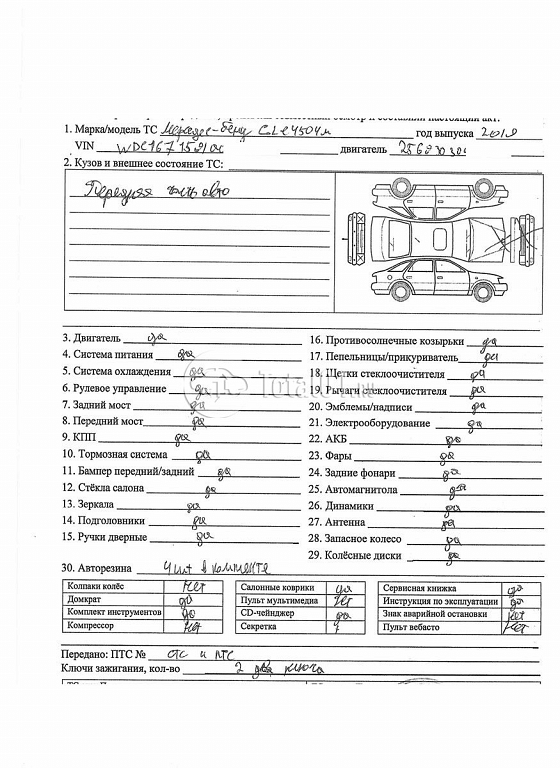 1. Марка/модель ТС Мерседес-Бенц год выпуска 2019
VIN двигатель
2. Кузов и внешнее состояние ТС:
Передняя часть авто
3. Двигатель да
4. Система питания да
5. Система охлаждения да
6. Рулевое управление да
7. Задний мост да
8. Передний мост да
9. КПП да
10. Тормозная система да
11. Бампер передний/задний да
12. Стёкла салона да
13. Зеркала да
14. Подголовники да
15. Ручки дверные да
16. Противосолнечные козырьки да
17. Пепельницы/прикуриватель да
18. Щетки стеклоочистителя да
19. Рычаги стеклоочистителя да
20. Эмблемы/надписи да
21. Электрооборудование да
22. АКБ да
23. Фары да
24. Задние фонари да
25. Автомагнитола да
26. Динамики да
27. Антенна да
28. Запасное колесо да
29. Колёсные диски да
30. Авторезина 4 шт в комплекте
Колпаки колёс нет
Домкрат да
Комплект инструментов да
Компрессор нет
Салонные коврики да
Пульт мультимедиа нет
CD-чейнджер да
Секретка
Сервисная книжка да
Инструкция по эксплуатации да
Знак аварийной остановки нет
Пульт вебасто нет
Передано: ПТС № СТС и ПТС
Ключи зажигания, кол-во 2 два ключа